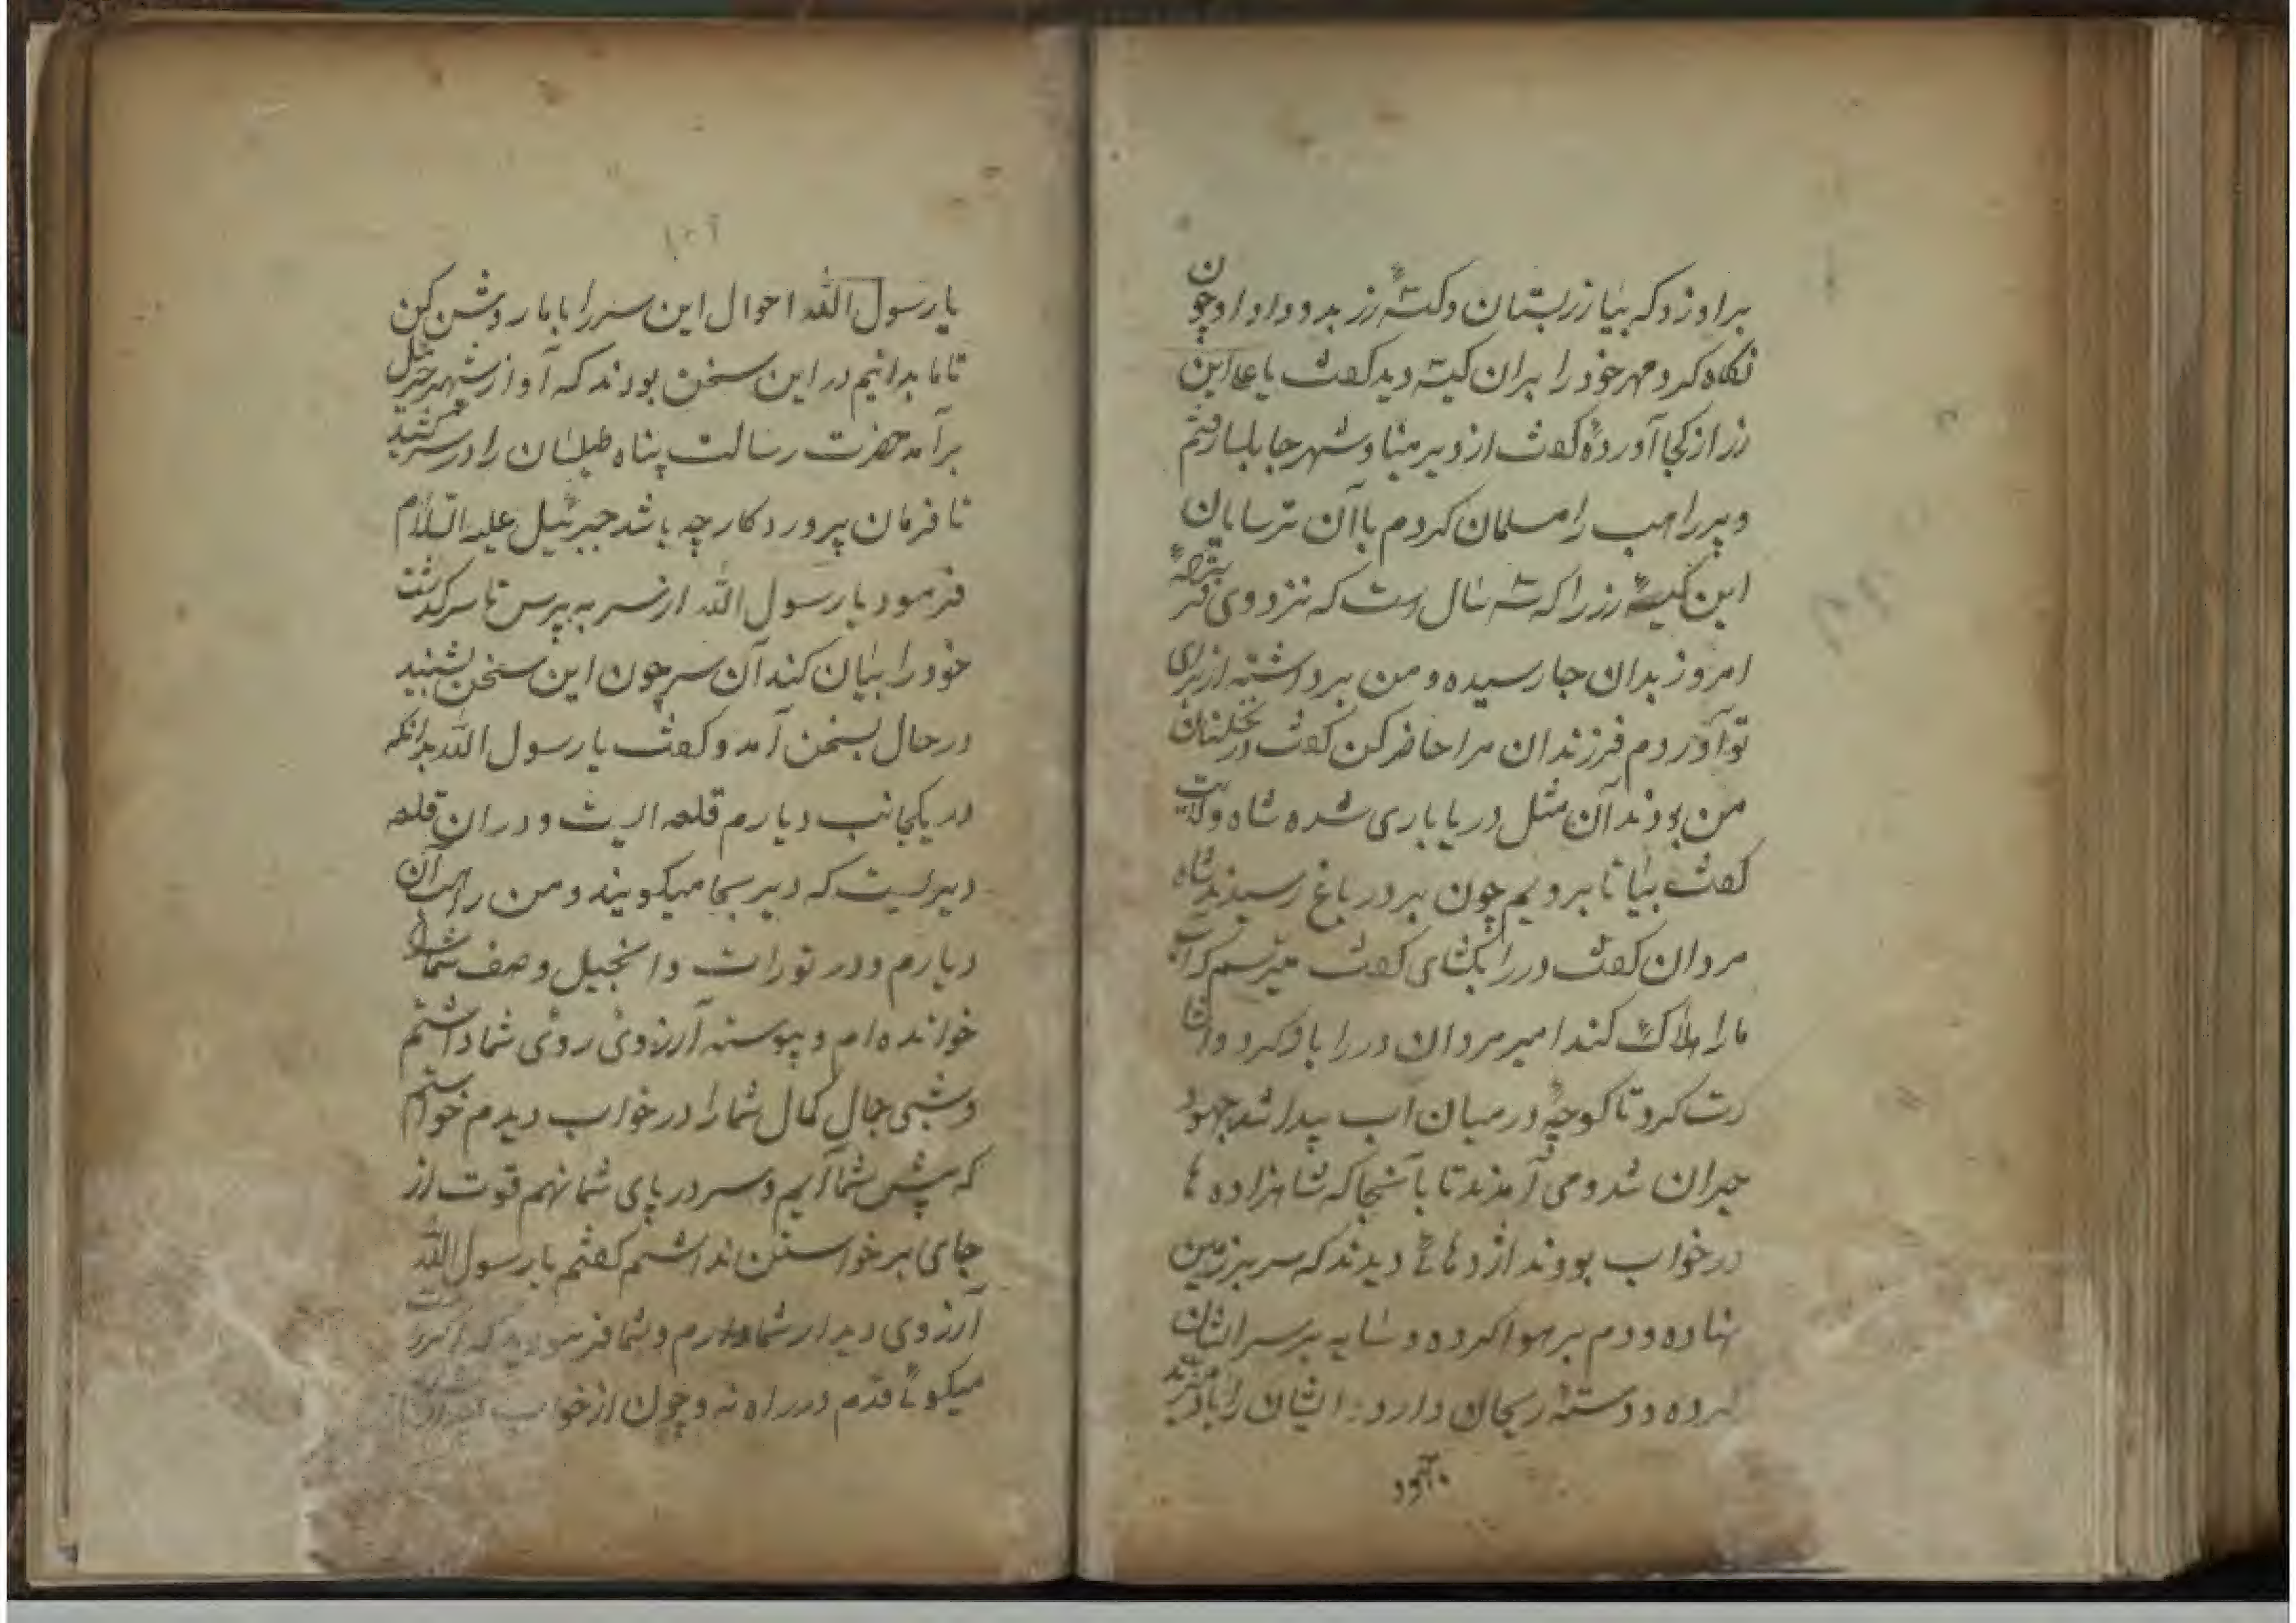 براو زد که بیا زر بستان و کیسهٔ زر بدو داد او چون
نگاه کرد مهر خود را بران کیسه دید گفت یا علی این
زر از کجا آوردهٔ گفت از دیر مینا و شهر جابلسا رفتم
و پیر راهب را مسلمان کردم با آن ترسایان
این کیسهٔ زر را که سه سال است که نزد وی
امروز بدان جا رسیده و من برداشته از برای
تو آوردم فرزندان مرا حاضر کن گفت در نخلستان
من بودند آن مثل دریا باری شده شاه ولایت
گفت بیا تا برویم چون بر در باغ رسیدند شاه
مردان گفت در را بکشای گفت میترسم که آب
ما را هلاک کند امیر مردان در را باز کرد و
رت کرد تا کوچهٔ در میان آب پیدا شد جهود
حیران شد و می آمدند تا بآنجا که شاهزاده ها
در خواب بودند اژدهائی دیدند که سر بر زمین
نهاده و دم بر هوا کرده و سایه بر سر ایشان
کرده و دستهٔ ریحان دارد ایشان را باد میزند
یا رسول الله احوال این سر را با ما روشن کن
تا ما بدانیم در این سخن بودند که آواز شهپر جبرئیل
برآمد حضرت رسالت پناه طیلسان را در سر کشید
تا فرمان پروردکار چه باشد جبرئیل علیه السلام
فرمود یا رسول الله از سر به پرس تا سرگذشت
خود را بیان کند آن سر چون این سخن بشنید
در حال بسخن آمد و گفت یا رسول الله بدانکه
در یکجانب دیارم قلعه ایست و دران قلعه
دیریست که دیر میکویند و من راهب آن
دیارم و در تورات و انجیل وصف شما را
خوانده ام و پیوسته آرزوی روی شما داشتم
و شبی جمال کمال شما را در خواب دیدم خواستم
که پیش شما آیم و سر در پای شما نهم قوت از
جای برخواستن نداشتم گفتم یا رسول الله
آرزوی دیدار شما دارم و شما فرمودید که
میکوئی قدم در راه نه و چون از خواب